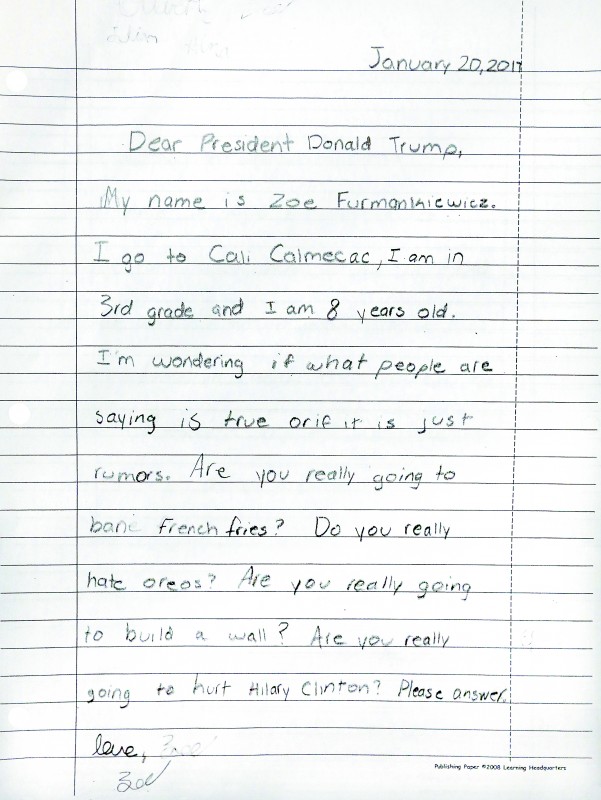 January 20, 2017
Dear President Donald Trump,
My name is Zoe Furmankiewicz.
I go to Cali Calmecac, I am in
3rd grade and I am 8 years old.
I'm wondering if what people are
saying is true or if it is just
rumors. Are you really going to
bane french fries? Do you really
hate oreos? Are you really going
to build a wall? Are you really
going to hurt Hilary Clinton? Please answer.
love,
Zoe
Publishing Paper ©2008 Learning Headquarters